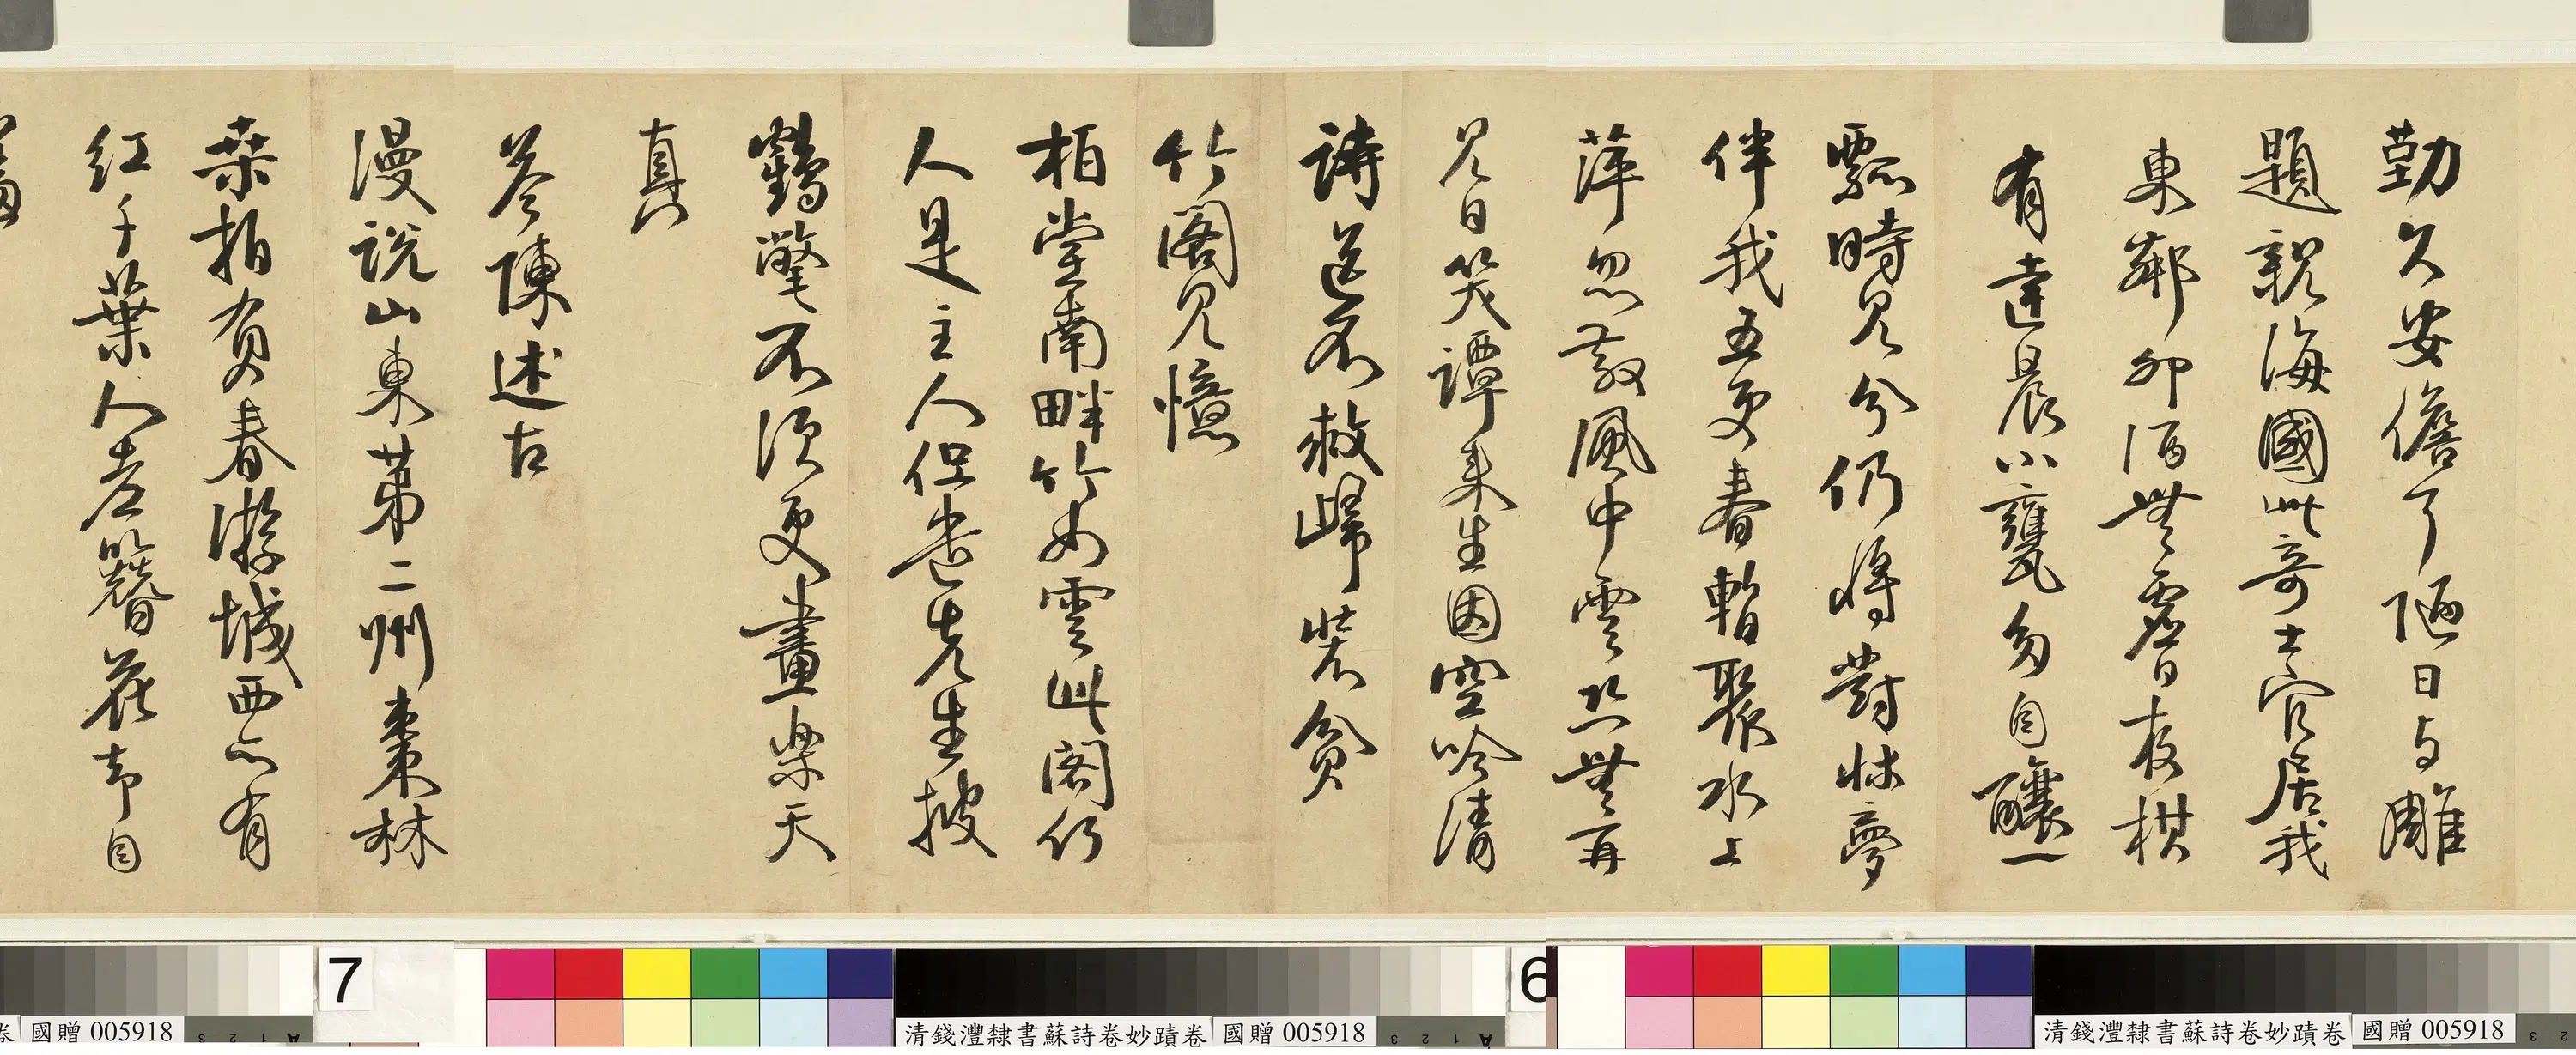 勤久安儋耳陋日与雕
題親海國此奇士官居我
東鄰卯酒無虛日夜棋
有達晨小甕多自釀一
瓢時見分仍將對牀夢
伴我五更春暫聚水上
萍忽散風中雲恐無再
見日笑譚来生因空吟清
詩送不救歸裝貧
竹閣見憶
柏堂南畔竹如雲此閣何
人是主人但遣先生披
鶴氅不須更畫樂天
真
答陳述古
漫說山東第二州棗林
桑柘負春游城西亦有
紅千葉人老簪花却自
羞
7
6
卷 國贈 005918
清錢灃隸書蘇詩卷妙蹟卷 國贈 005918
清錢灃隸書蘇詩卷妙蹟卷 國贈 005918